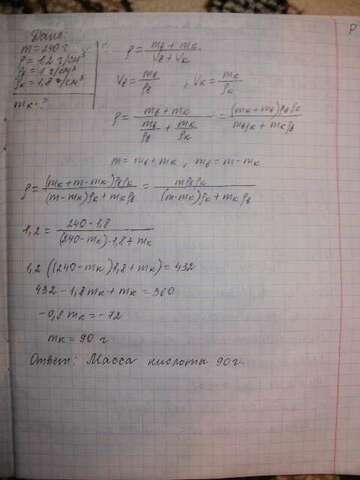 Дано:
m = 240 г
ρ = 1,2 г/см³
ρв = 1 г/см³
ρк = 1,8 г/см³
mк - ?
ρ = (mв + mк)/(Vв + Vк)
Vв = mв/ρв , Vк = mк/ρк
ρ = (mв + mк)/(mв/ρв + mк/ρк) = (mк + mв)ρвρк/(mвρк + mкρв)
m = mв + mк , mв = m - mк
ρ = (mк + m - mк)ρвρк/((m - mк)ρк + mкρв) = mρвρк/((m - mк)ρк + mкρв)
1,2 = 240 - 1,8/((240 - mк) · 1,8 + mк)
1,2((240 - mк)1,8 + mк) = 432
432 - 1,8mк + mк = 360
-0,8mк = -72
mк = 90 г
Ответ: Масса кислота 90 г.
Р